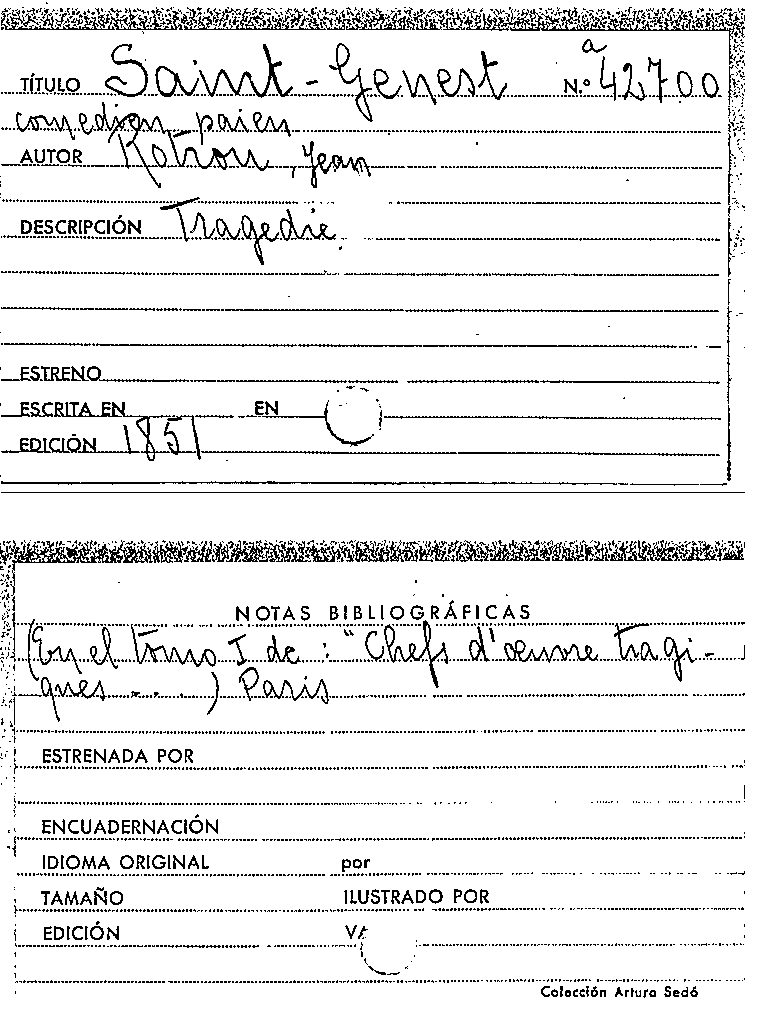 TÍTULO Saint-Genest N.º a 42700
comedien paien
AUTOR Rotrou, Jean
DESCRIPCIÓN Tragedie.
ESTRENO
ESCRITA EN EN
EDICIÓN 1851
NOTAS BIBLIOGRÁFICAS
(En el tomo I de : "Chefs d'œuvre tragi-
ques ....) Paris
ESTRENADA POR
ENCUADERNACIÓN
IDIOMA ORIGINAL por
TAMAÑO ILUSTRADO POR
EDICIÓN
Colección Arturo Sedó